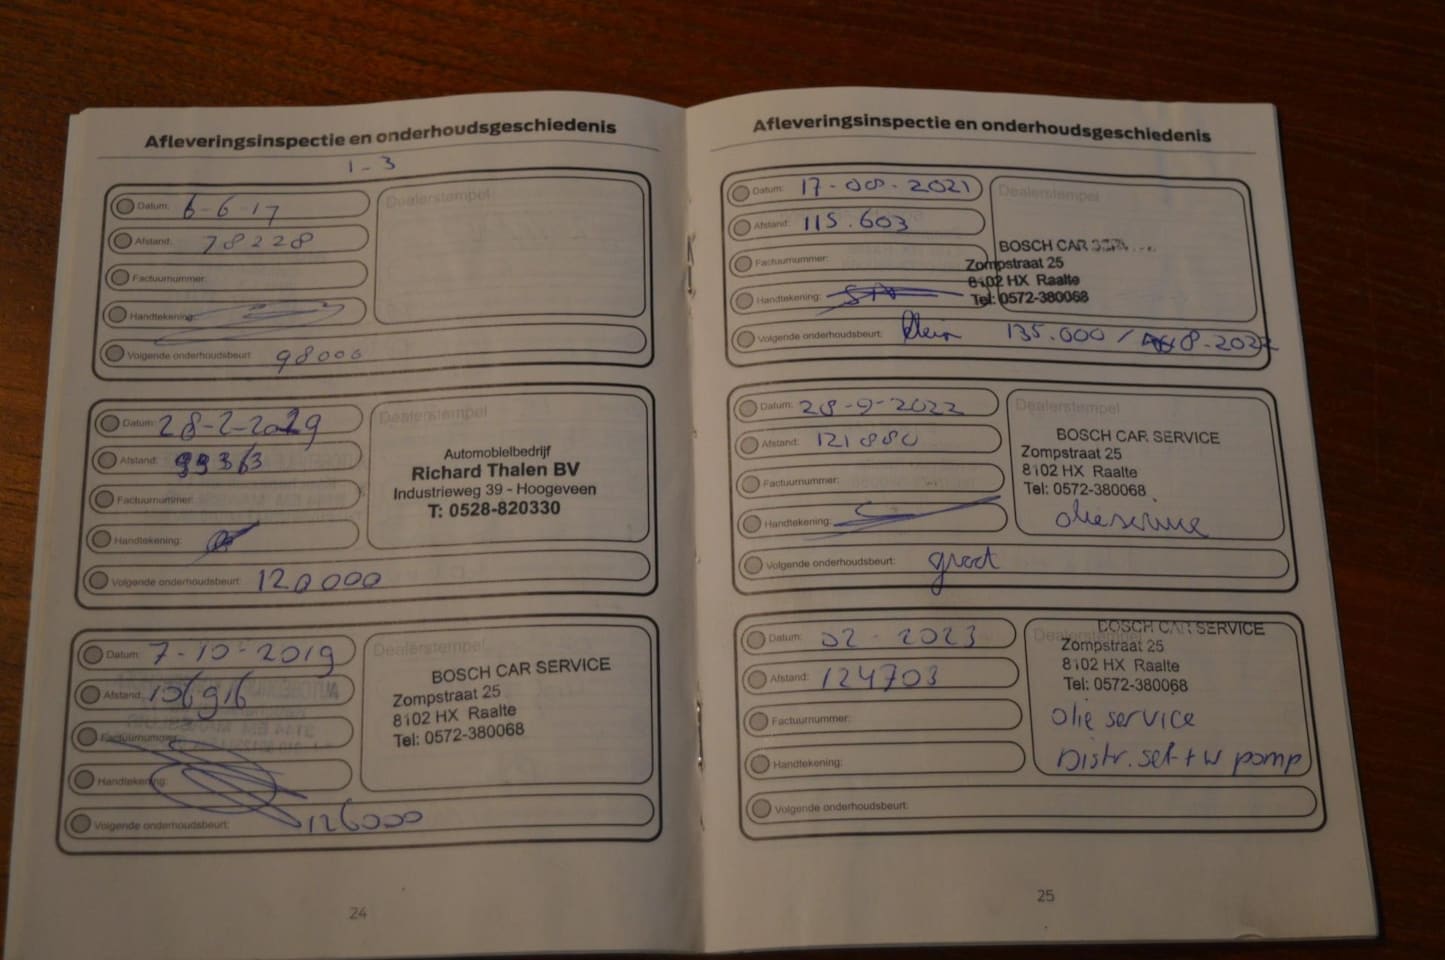 Afleveringsinspectie en onderhoudsgeschiedenis
1-3
Datum: 6-6-17
Dealerstempel
Afstand: 78228
Factuurnummer:
Handtekening:
Volgende onderhoudsbeurt: 98000
Datum: 28-2-2019
Dealerstempel
Afstand: 99363
Factuurnummer:
Handtekening:
Automobielbedrijf
Richard Thalen BV
Industrieweg 39 - Hoogeveen
T: 0528-820330
Volgende onderhoudsbeurt: 120000
Datum: 7-10-2019
Dealerstempel
Afstand: 106916
Factuurnummer:
Handtekening:
BOSCH CAR SERVICE
Zompstraat 25
8102 HX Raalte
Tel: 0572-380068
Volgende onderhoudsbeurt: 126000
24
Afleveringsinspectie en onderhoudsgeschiedenis
Datum: 17-08-2021
Dealerstempel
Afstand: 115.603
Factuurnummer:
Handtekening:
BOSCH CAR
Zompstraat 25
8102 HX Raalte
Tel: 0572-380068
Volgende onderhoudsbeurt: klein 135.000 / 8-2022
Datum: 28-9-2022
Dealerstempel
Afstand: 121880
Factuurnummer:
Handtekening:
BOSCH CAR SERVICE
Zompstraat 25
8102 HX Raalte
Tel: 0572-380068
olieservice
Volgende onderhoudsbeurt: groot
Datum: 02-2023
Dealerstempel
Afstand: 124703
Factuurnummer:
Handtekening:
BOSCH CAR SERVICE
Zompstraat 25
8102 HX Raalte
Tel: 0572-380068
Olie service
Distr. set + w pomp
Volgende onderhoudsbeurt:
25